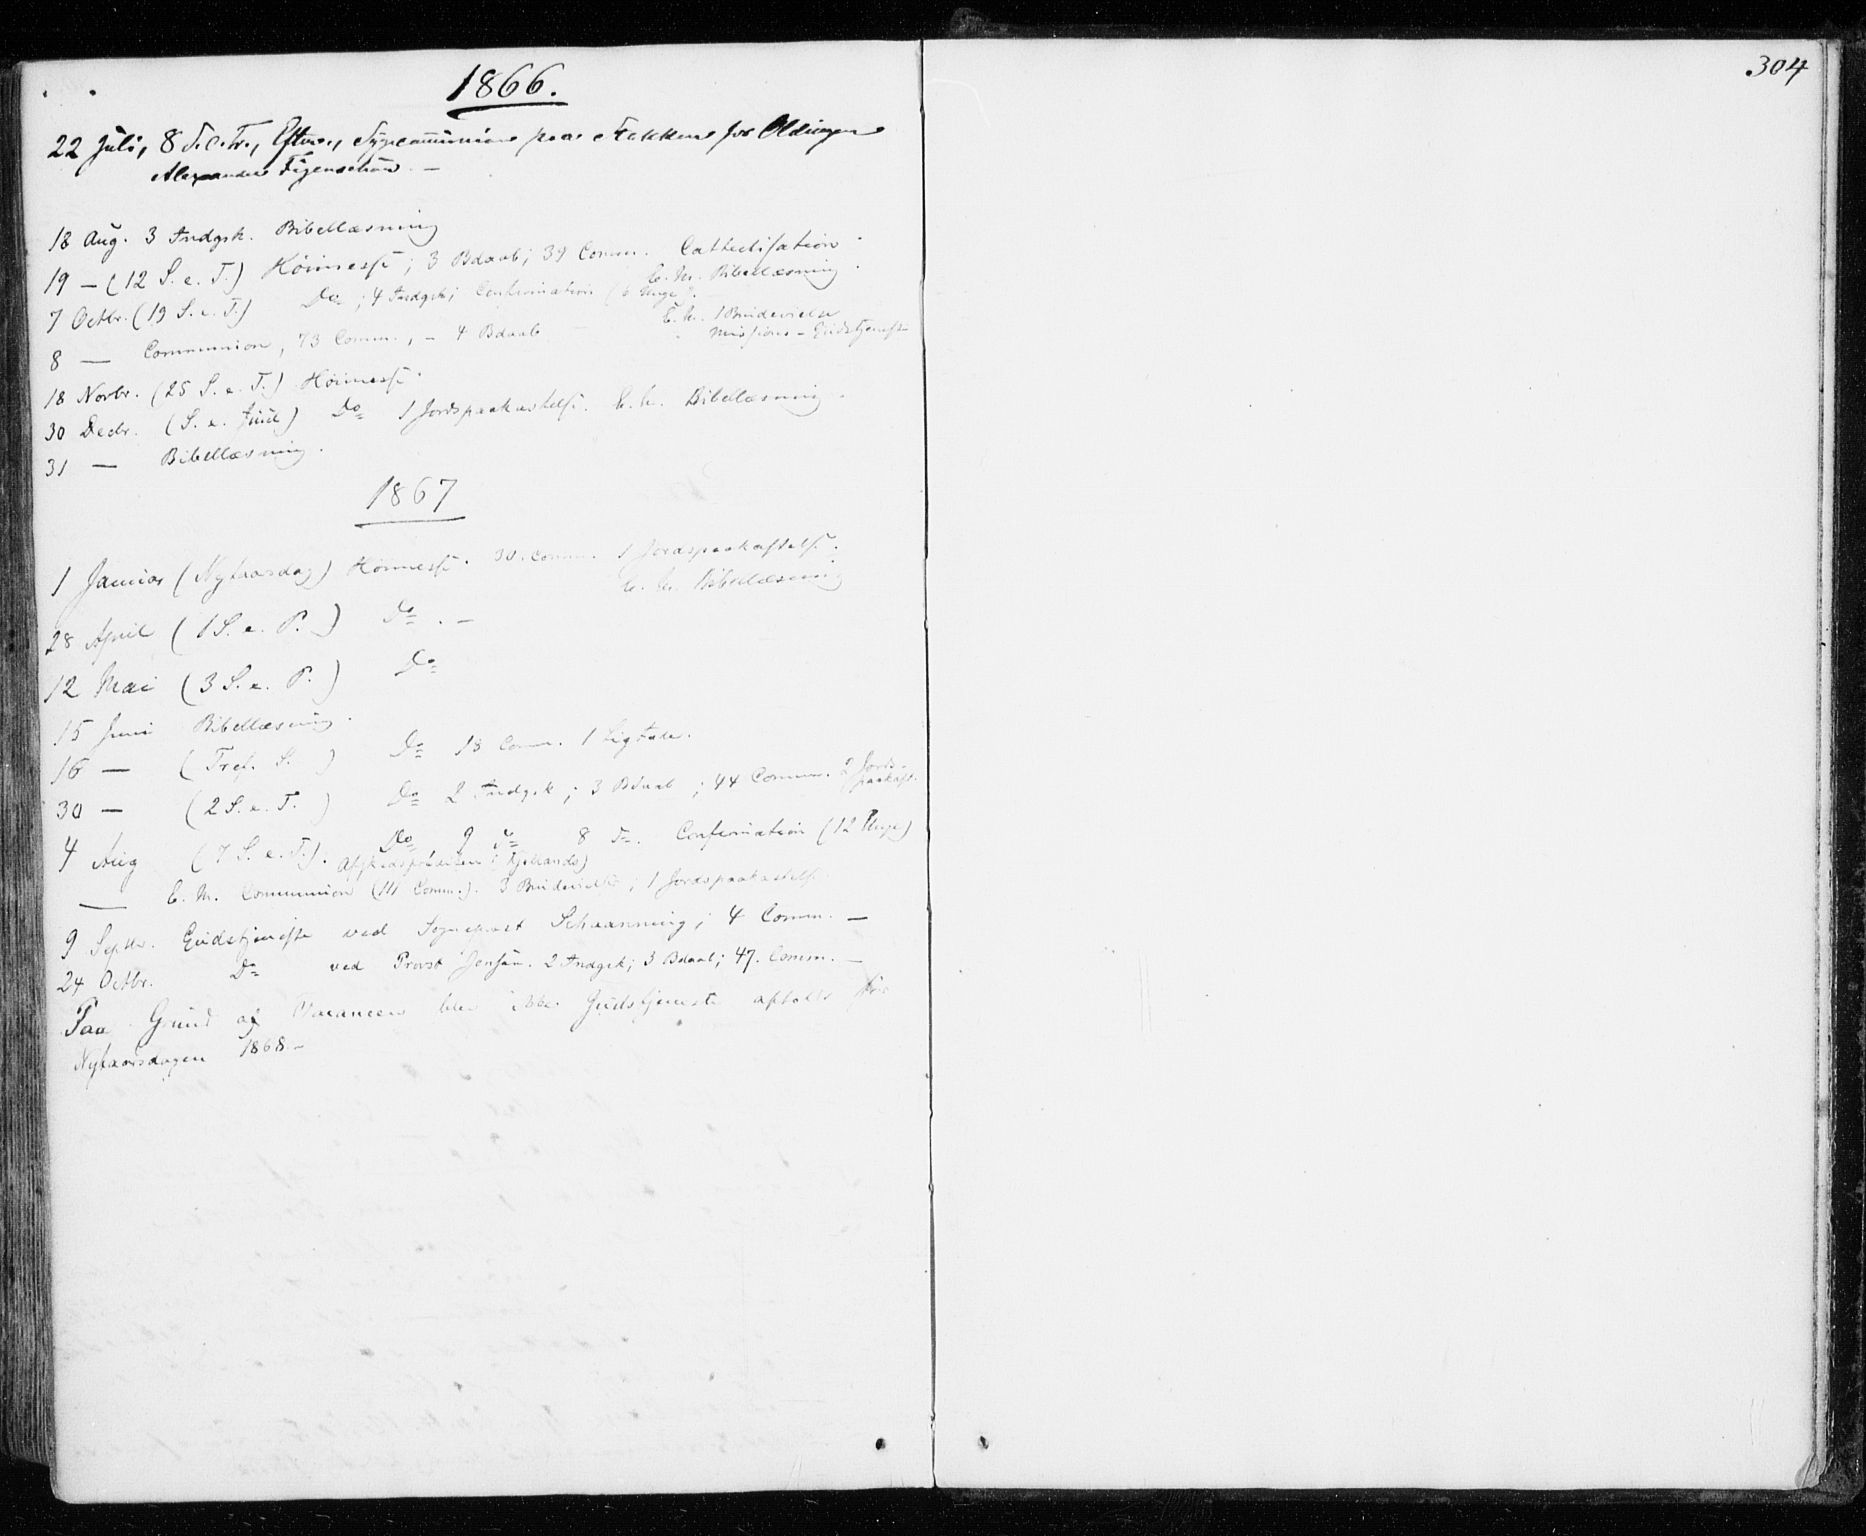 304
1866.
22 Juli, 8 S. e. Tr., Efterm., Sygecommunion paa Stakken for Oldingen
Alexander Figenschou. —
18 Aug. 3 Indgsk. Bibellæsning
19 — (12 S. e. T.) Høimesse; 3 Bdaab; 39 Comm. Cathechisation.
E. M. Bibellæsning.
7 Octbr. (19 S. e. T.) Do ; 4 Indgsk; Confirmation (6 Unge).
E. M. 1 Brudevielse
8 — Communion, 73 Comm., — 4 Bdaab
Missions-Gudstjeneste
18 Novbr. (25 S. e. T.) Høimesse.
30 Decbr. (S. e. Juul) Do 1 Jordspaakastelse. E. M. Bibellæsning.
31 — Bibellæsning.
1867
1 Januar (Nytaarsdag) Høimesse. 30. Comm. 1 Jordspaakastelse.
E. M. Bibellæsning
28 April (1 S. e. P.) Do . —
12 Mai (3 S. e. P.) Do
15 Juni Bibellæsning.
16 — (Tref. S. ) Do 13 Comm. 1 Ligtale.
30 — (2 S. e. T. ) Do 2 Indgsk; 3 Bdaab; 44 Comm. 2 Jords-
paakast.
4 Aug (7 S. e. T.). Do 9 Do 8 Do. Confirmation (12 Unge)
— E. M. Communion (111 Comm.). 3 Brudevielser; 1 Jordspaakastelse.
9 Septbr. Gudstjeneste ved Sognepræst Schaanning; 4 Comm. —
24 Octbr. Do ved Provst 2 Indgsk; 3 Bdaab; 47. Comm. —
Paa Grund af Vacancen blev ikke Gudstjeneste afholdt før
Nytaarsdagen 1868. —